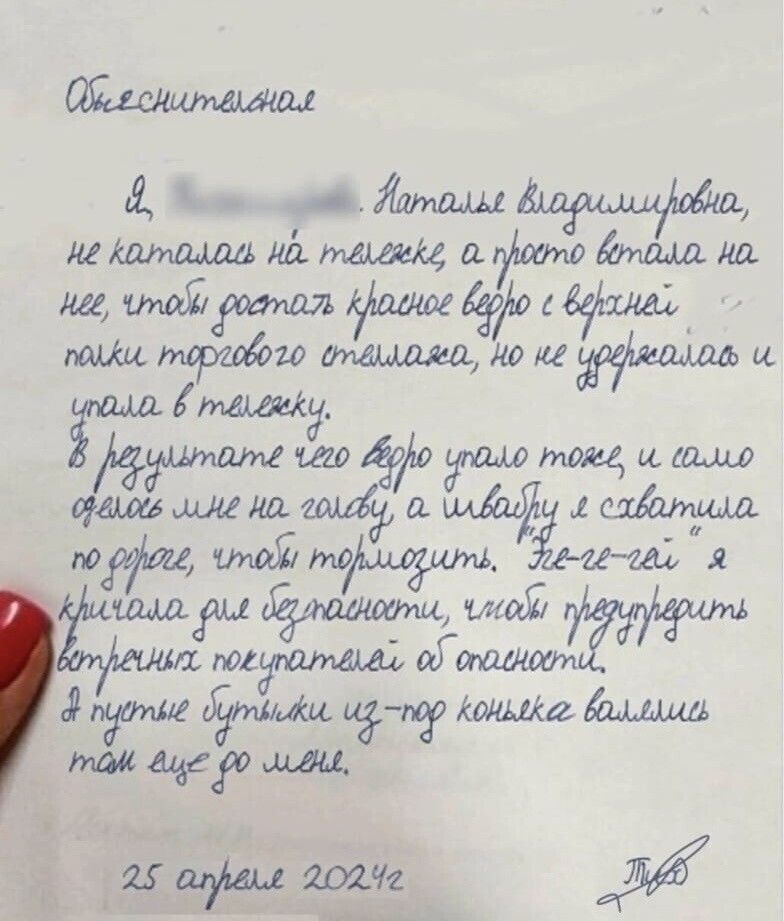 Объяснительная
Я, . Наталья Владимировна,
не каталась на тележке, а просто встала на
нее, чтобы достать красное ведро с верхней
полки торгового стеллажа, но не удержалась и
упала в тележку.
В результате чего ведро упало тоже, и само
оделось мне на голову, а швабру я схватила
по дороге, чтобы тормозить. "Эге-ге-гей" я
кричала для безопасности, чтобы предупредить
встречных покупателей об опасности.
А пустые бутылки из-под коньяка валялись
там еще до меня.
25 апреля 2024г